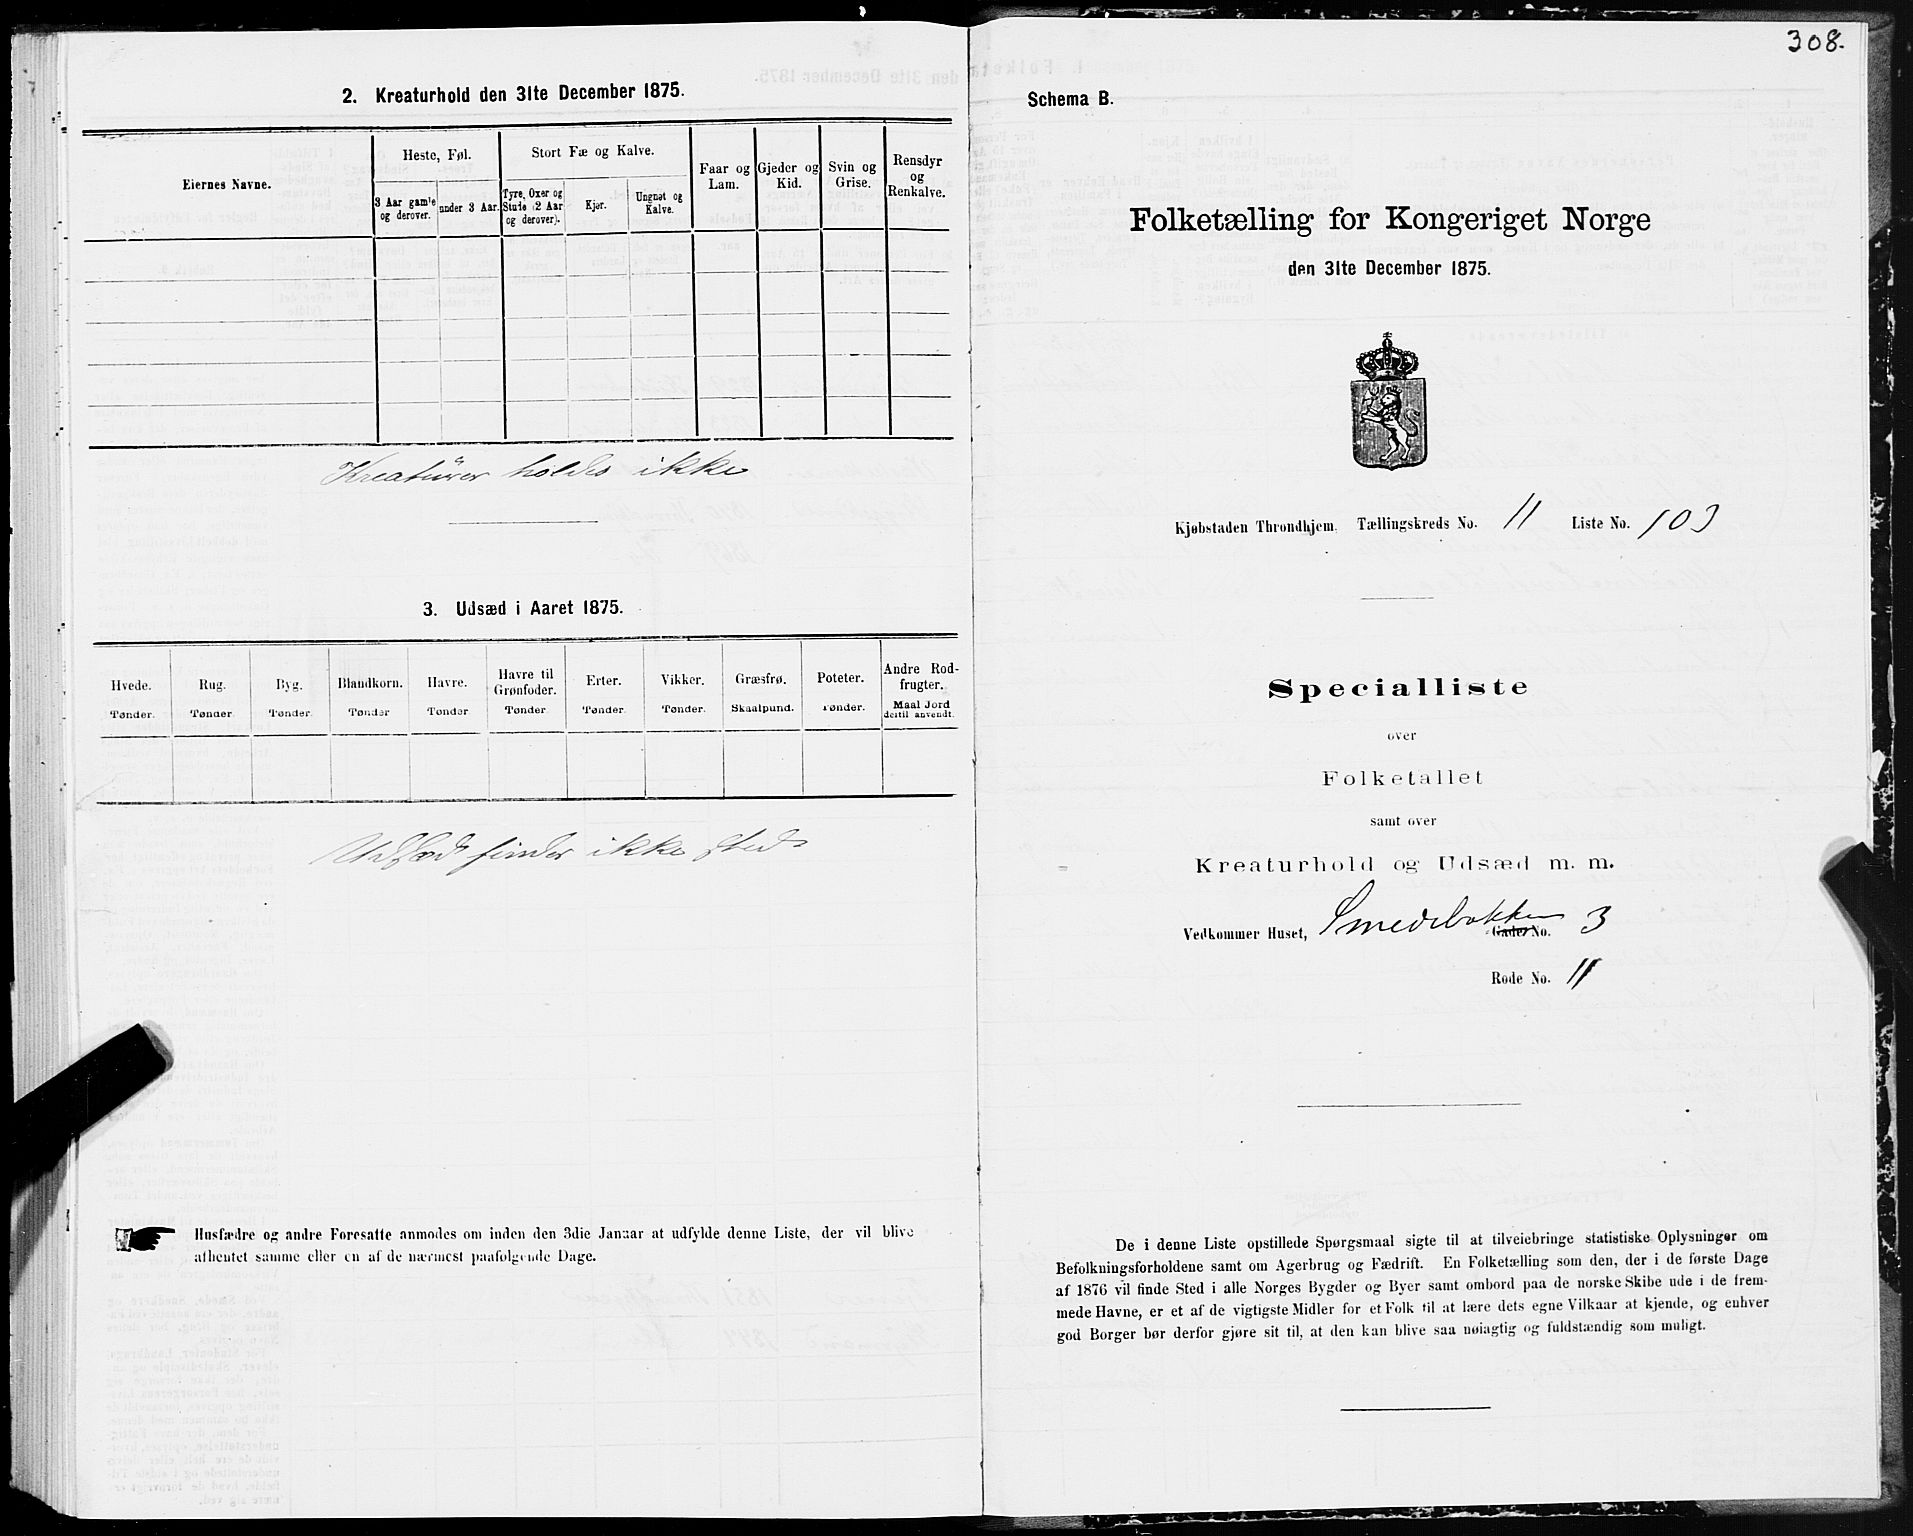 2. Kreaturhold den 31te December 1875.
Eiernes Navne.
Heste, Føl.
Stort Fæ og Kalve.
Faar og Lam.
Gjeder og Kid.
Svin og Grise.
Rensdyr og Renkalve.
3 Aar gamle og derover.
under 3 Aar.
Tyre, Oxer og Stude (2 Aar og derover).
Kjør.
Ungnøt og Kalve.
Kreaturer holdes ikke
3. Udsæd i Aaret 1875.
Hvede. Rug. Byg. Blandkorn. Havre. Havre til Grønfoder. Erter. Vikker. Græsfrø. Poteter. Andre Rodfrugter.
Tønder. Tønder. Tønder. Tønder Tønder Tønder. Tønder. Tønder. Skaalpund. Tønder. Maal Jord dertil anvendt.
Udsæd finder ikke sted
Husfædre og andre Foresatte anmodes om inden den 3die Januar at udfylde denne Liste, der vil blive
afhentet samme eller en af de nærmest paafølgende Dage.
308.
Schema B.
Folketælling for Kongeriget Norge
den 31te December 1875.
Kjøbstaden Throndhjem. Tællingskreds No. 11 Liste No. 103
Specialliste
over
Folketallet
samt over
Kreaturhold og Udsæd m. m.
Vedkommer Huset, Smedebakken Gade No. 3
Rode No. 11
De i denne Liste opstillede Spørgsmaal sigte til at tilveiebringe statistiske Oplysninger om
Befolkningsforholdene samt om Agerbrug og Fædrift. En Folketælling som den, der i de første Dage
af 1876 vil finde Sted i alle Norges Bygder og Byer samt ombord paa de norske Skibe ude i de frem-
mede Havne, er et af de vigtigste Midler for et Folk til at lære dets egne Vilkaar at kjende, og enhver
god Borger bør derfor gjøre sit til, at den kan blive saa nøiagtig og fuldstændig som muligt.